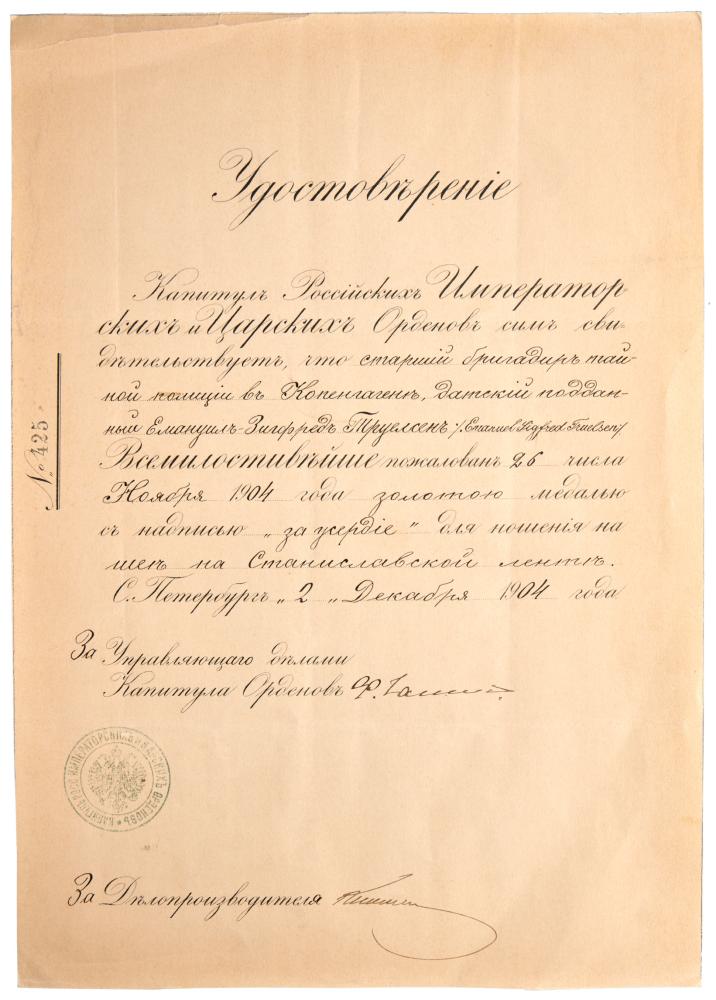 Удостовѣреніе
Капитулъ Россійскихъ Император
скихъ и Царскихъ Орденовъ симъ сви-
дѣтельствуетъ, что старшій бригадиръ тай-
ной полиціи въ Копенгагенѣ, датскій поддан-
ный Емануилъ-Зигфредъ Труелсенъ /Emanuel Segfred Truelsen/
Всемилостивѣйше пожалованъ 26 числа
Ноября 1904 года золотою медалью
съ надписью „за усердіе" для ношенія на
шеѣ на Станиславской лентѣ.
С. Петербургъ „2 „ Декабря 1904 года
№ 425
За Управляющаго дѣлами
Капитула Орденовъ
КАПИТУЛЪ ИМПЕРАТОРСКИХЪ И ЦАРСКИХЪ ОРДЕНОВЪ
За Дѣлопроизводителя